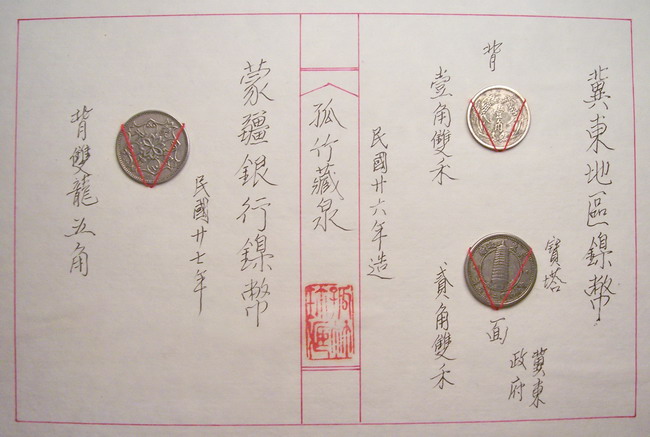 冀東地區鎳幣
寶塔
冀東
政府
背
面
壹角雙禾
貳角雙禾
民國廿六年造
孤竹藏泉
蒙疆銀行鎳幣
民國廿七年
背雙龍五角